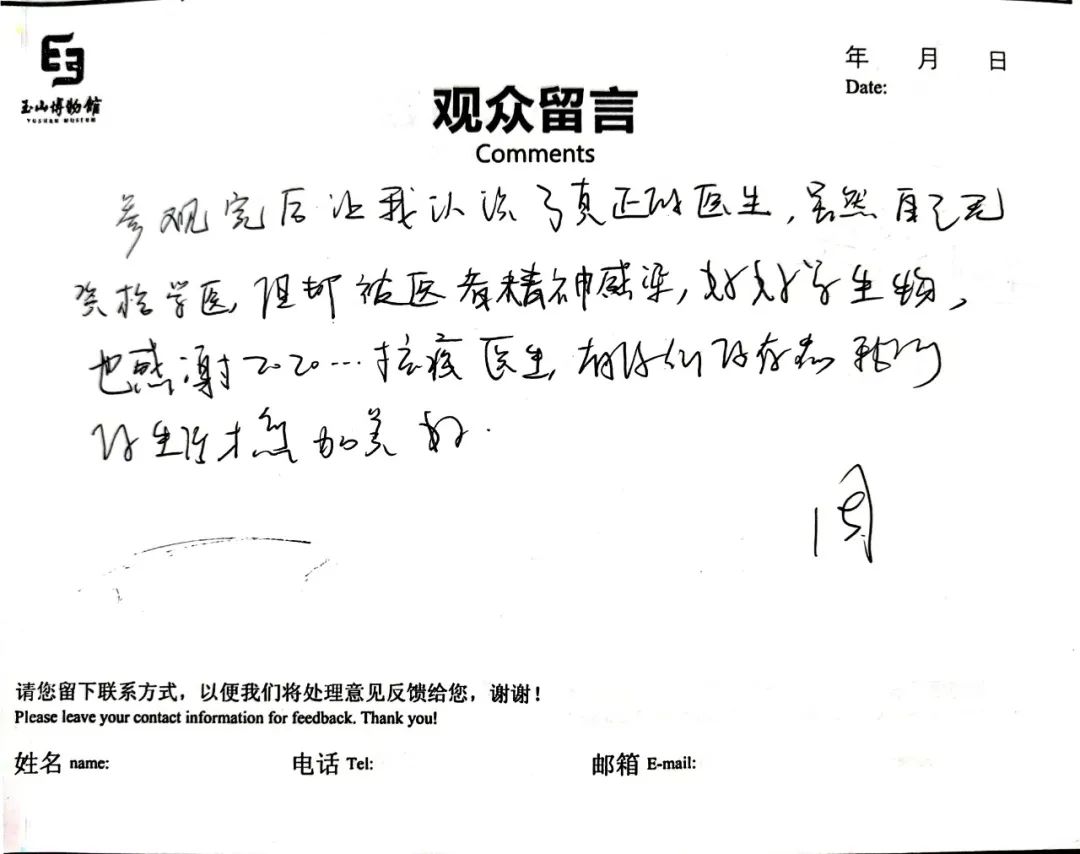 玉山博物馆
YUSHAN MUSEUM
年 月 日
Date:
观众留言
Comments
参观完后让我认识了真正的医生，虽然自己无
资格学医，但却被医者精神感染，好好学生物，
也感谢2020…抗疫医生，有你们的存在 我们
的生活才会更加美好.
周
请您留下联系方式，以便我们将处理意见反馈给您，谢谢！
Please leave your contact information for feedback. Thank you!
姓名 name: 电话 Tel: 邮箱 E-mail: